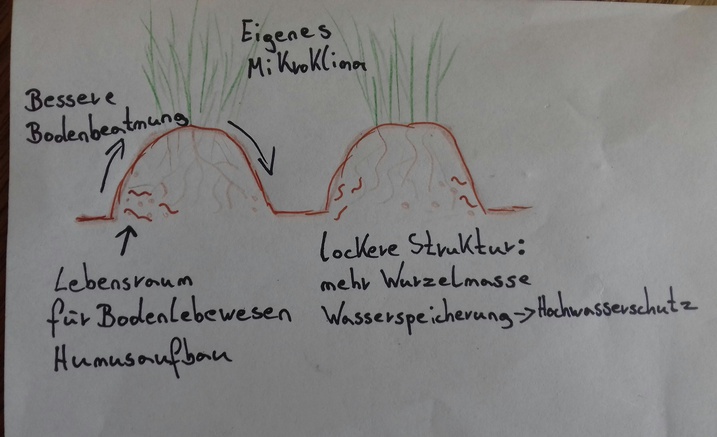 Eigenes
Mikroklima
Bessere
Bodenbeatmung
Lebensraum
für Bodenlebewesen
Humusaufbau
lockere Struktur:
mehr Wurzelmasse
Wasserspeicherung->Hochwasserschutz